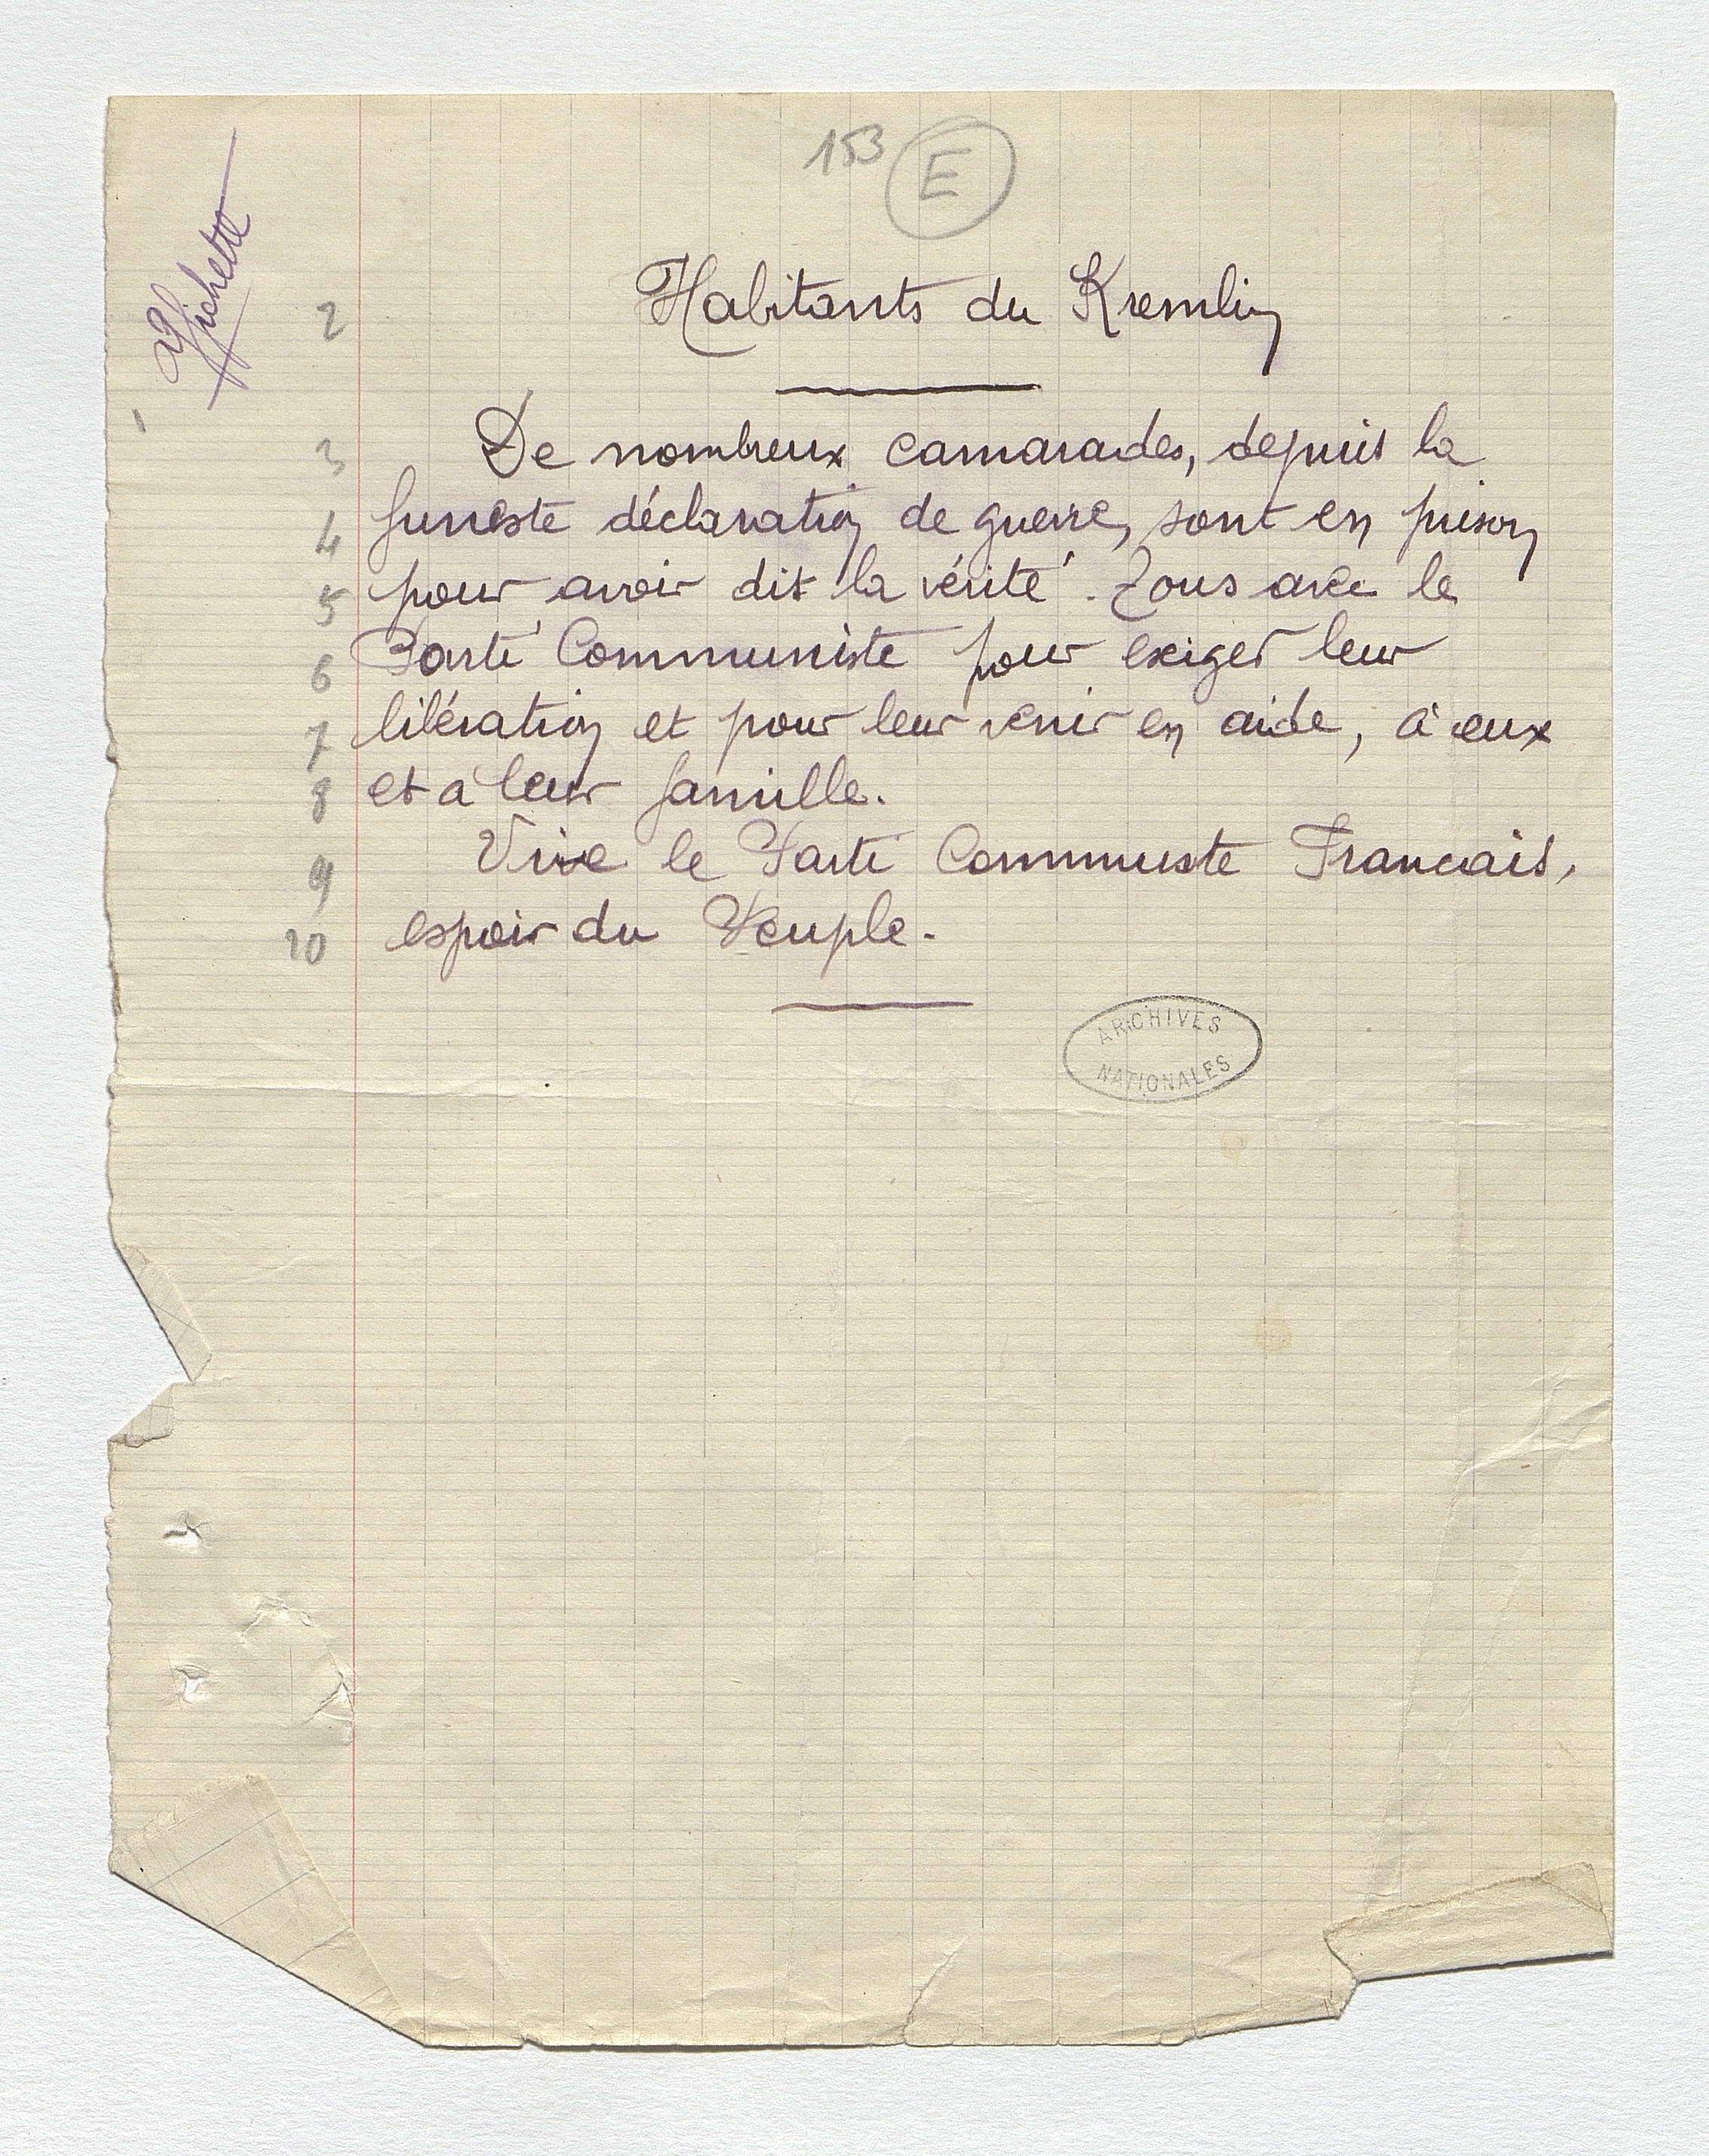 153 E
affichette
1
2 Habitants du Kremlin
3 De nombreux camarades, depuis la
4 funeste déclaration de guerre, sont en prison
5 pour avoir dit la vérité. Tous avec le
6 Parti Communiste pour exiger leur
7 libération et pour leur venir en aide, à eux
8 et à leur famille.
9 Vive le Parti Communste Francais,
10 espoir du Peuple.
ARCHIVES
NATIONALES